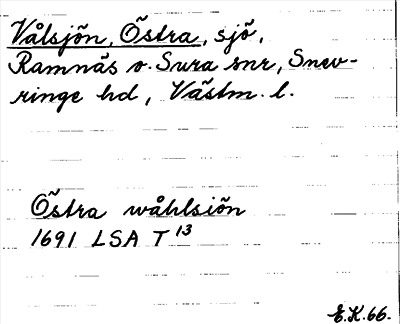 Vålsjön, Östra, sjö,
Ramnäs o. Sura snr, Snev-
ringe hd, Västm. l.
Östra wåhlsiön
1691 LSA T 13
E.K.66.